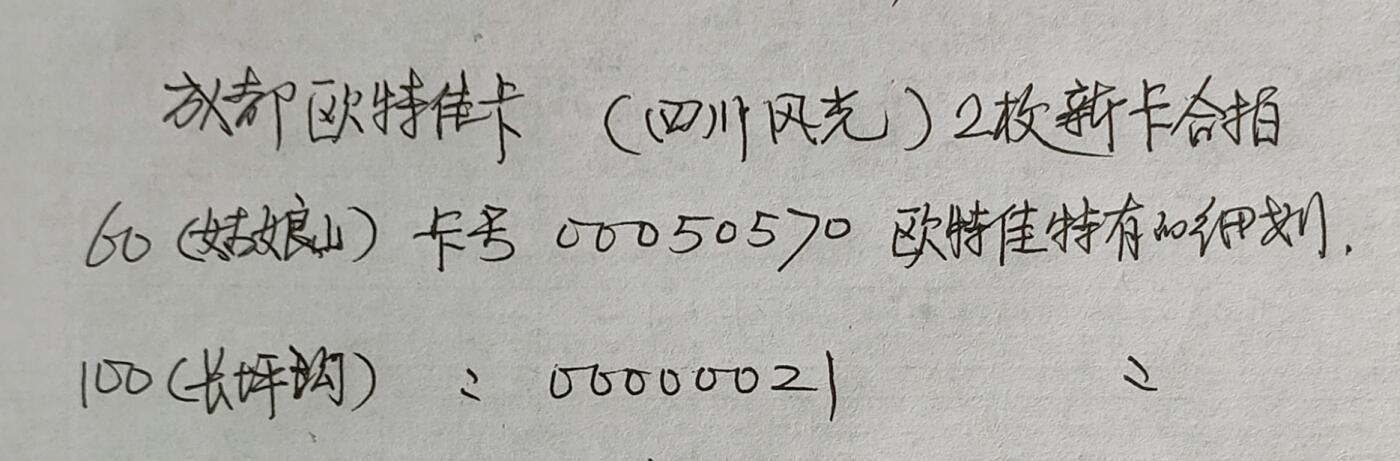 成都欧特佳卡 (四川风光) 2枚新卡合拍
60 (姑娘山) 卡号 00050570 欧特佳特有的细划.
100 (长坪沟) 〃 00000021 〃